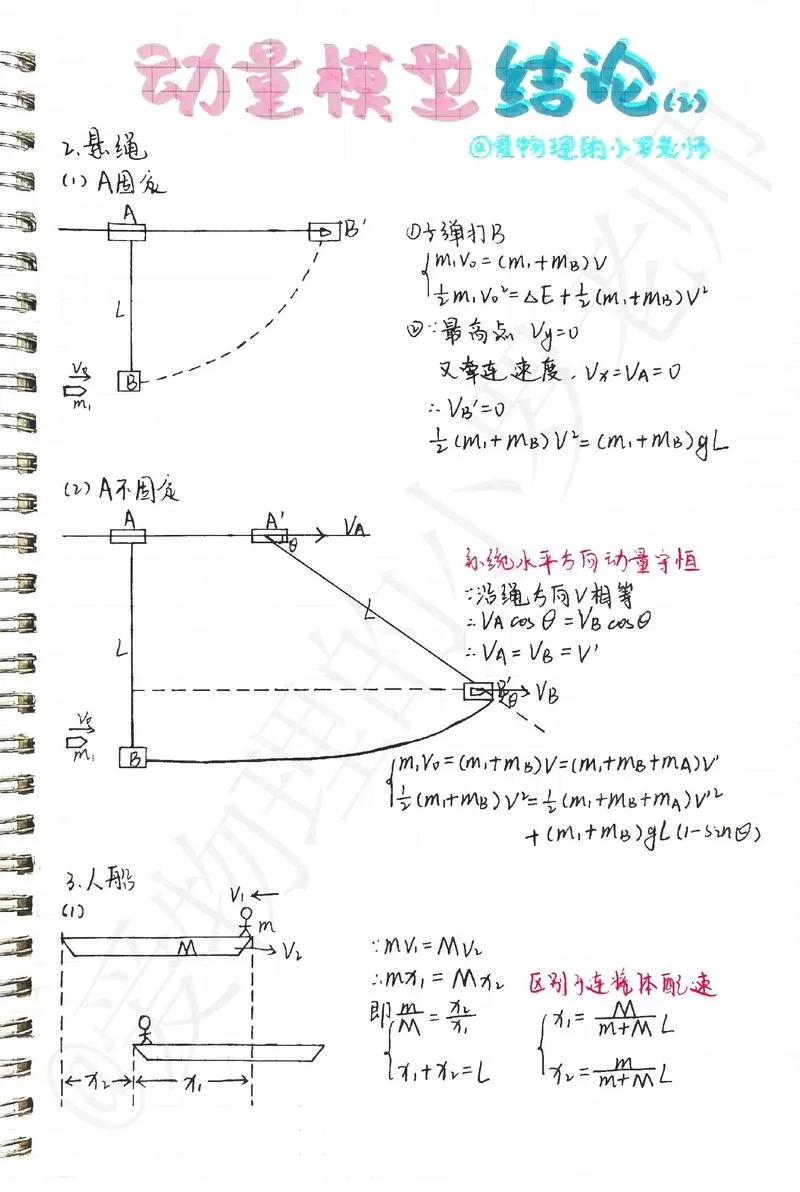 动量模型结论(2)
@爱物理的小罗老师
2.悬绳
(1) A固定
A
B'
L
V₀
m₁
B
①子弹打B
m₁V₀=(m₁+mB)V
½m₁V₀²=ΔE+½(m₁+mB)V²
②∵最高点 Vy=0
又牵连速度, Vx=VA=0
∴VB'=0
½(m₁+mB)V²=(m₁+mB)gL
(2) A不固定
A
A'
θ
VA
L
L
B'
θ
VB
V₀
m₁
B
系统水平方向动量守恒
∵沿绳方向V相等
∴VA cosθ=VB cosθ
∴VA=VB=V'
m₁V₀=(m₁+mB)V=(m₁+mB+mA)V'
½(m₁+mB)V²=½(m₁+mB+mA)V'²
+(m₁+mB)gL(1-sinθ)
3.人船
(1)
V₁
m
M
V₂
x₂
x₁
∵mV₁=MV₂
∴mx₁=Mx₂
即 m/M=x₂/x₁
x₁+x₂=L
区别于连接体配速
x₁=M/(m+M) L
x₂=m/(m+M) L
@爱物理的小罗老师